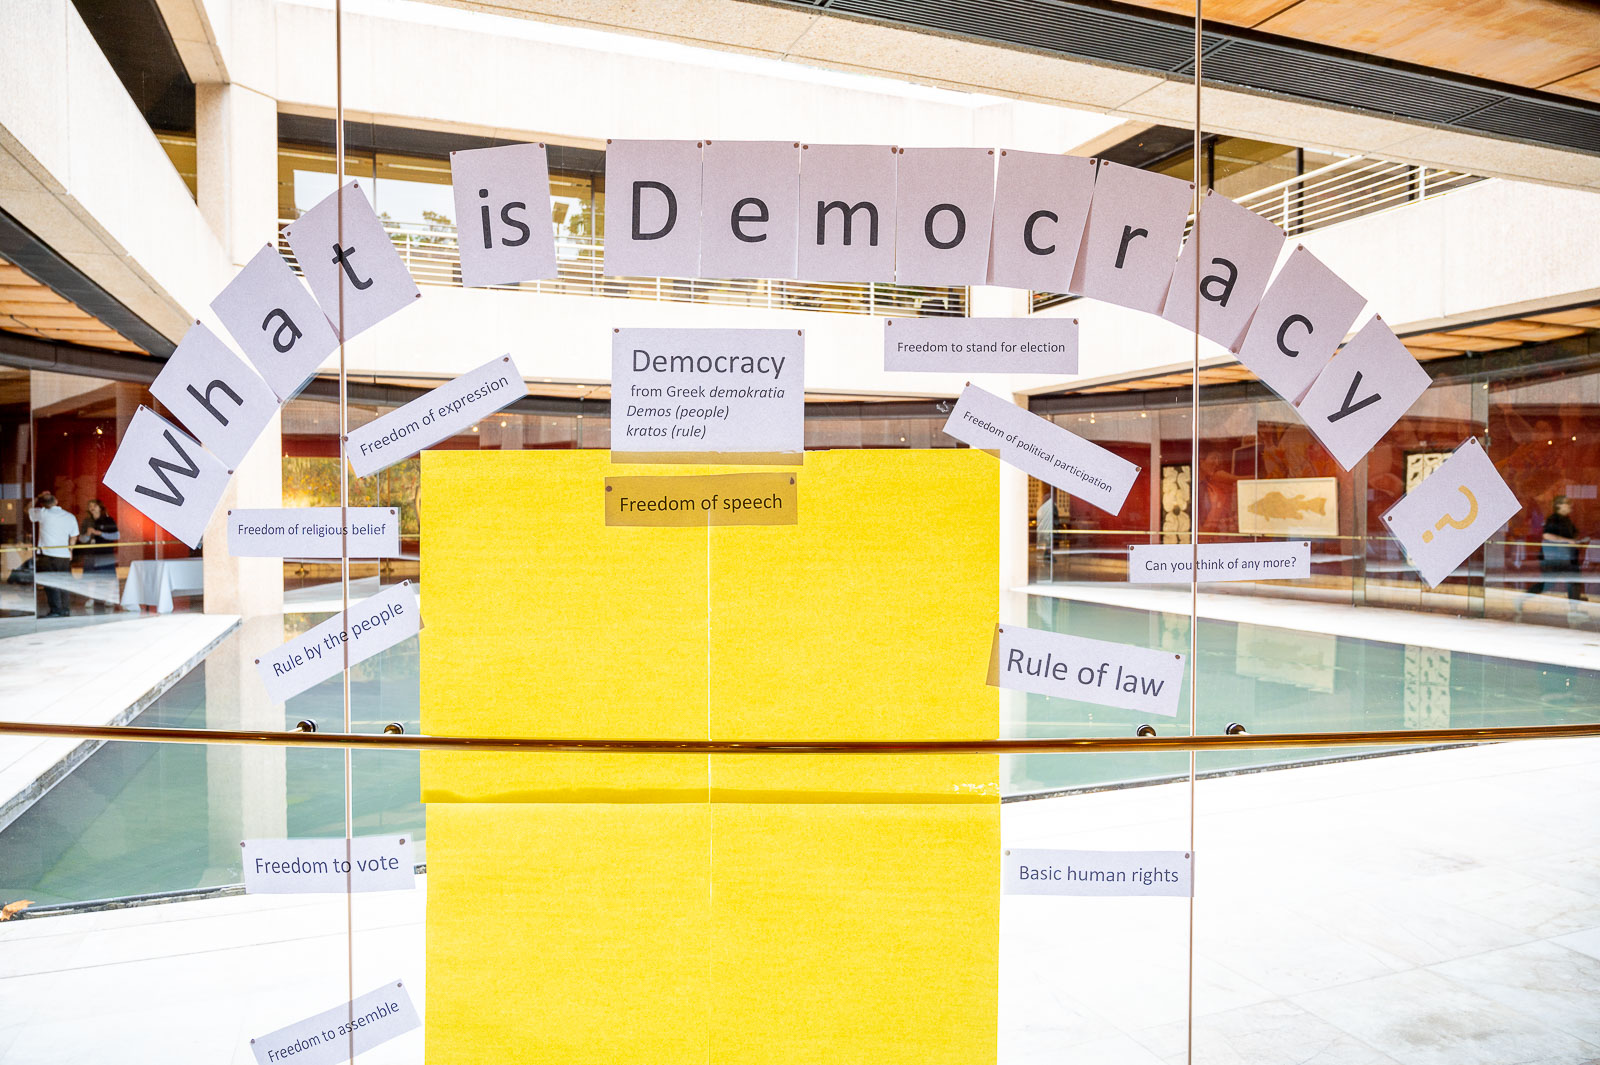 What is Democracy?
Democracy
from Greek demokratia
Demos (people)
kratos (rule)
Freedom to stand for election
Freedom of expression
Freedom of political participation
Freedom of speech
Freedom of religious belief
Can you think of any more?
Rule by the people
Rule of law
Freedom to vote
Basic human rights
Freedom to assemble